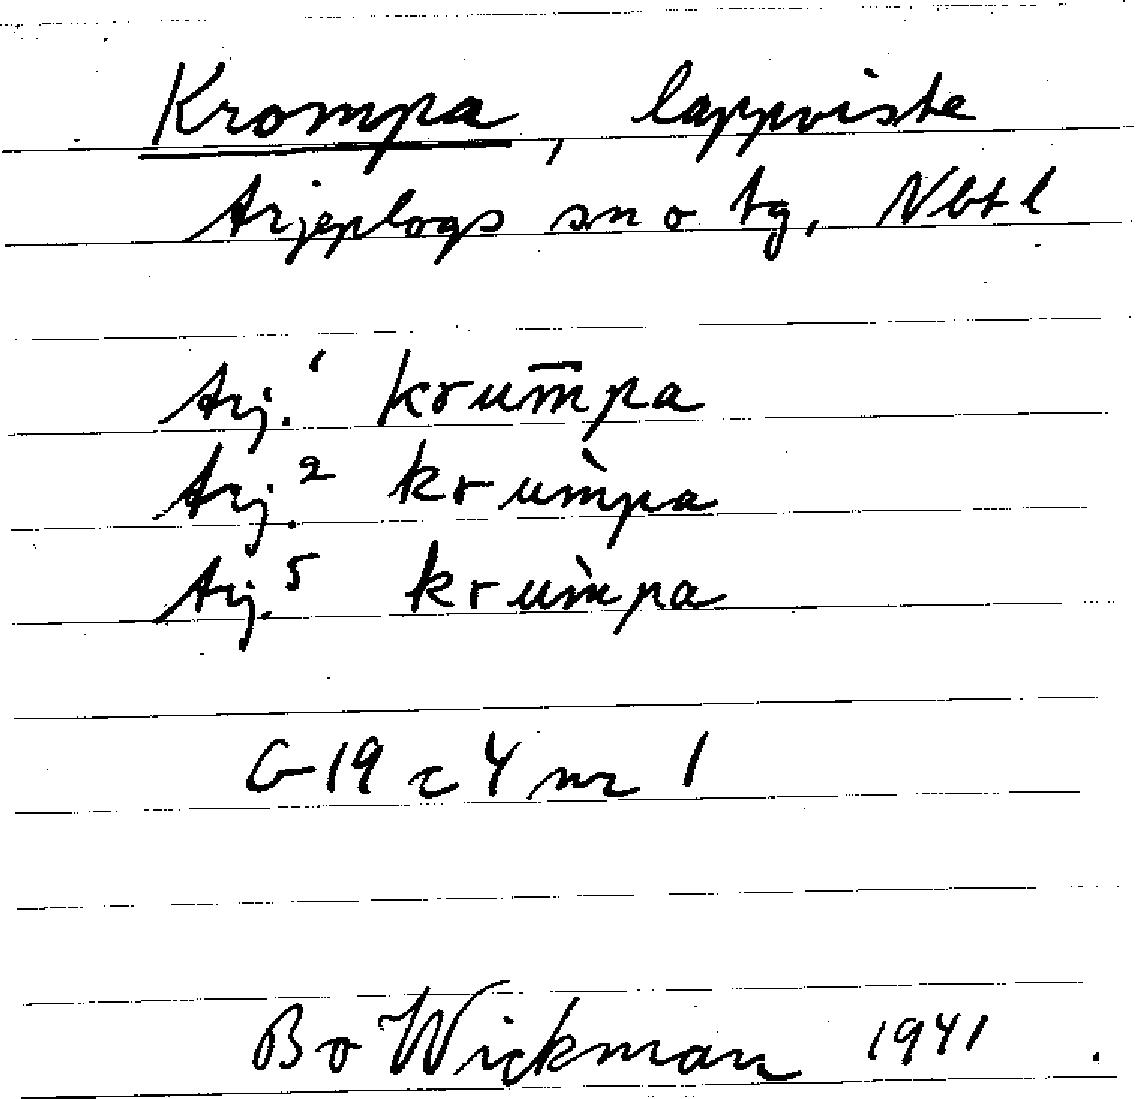 Krompa, lappviste
Arjeplogs sn o tg, Nbtl
Arj.¹ krum̅pa
Arj.² krum̀pa
Arj.⁵ krum̀pa
G 19 c 4 nr 1
Bo Wickman 1941